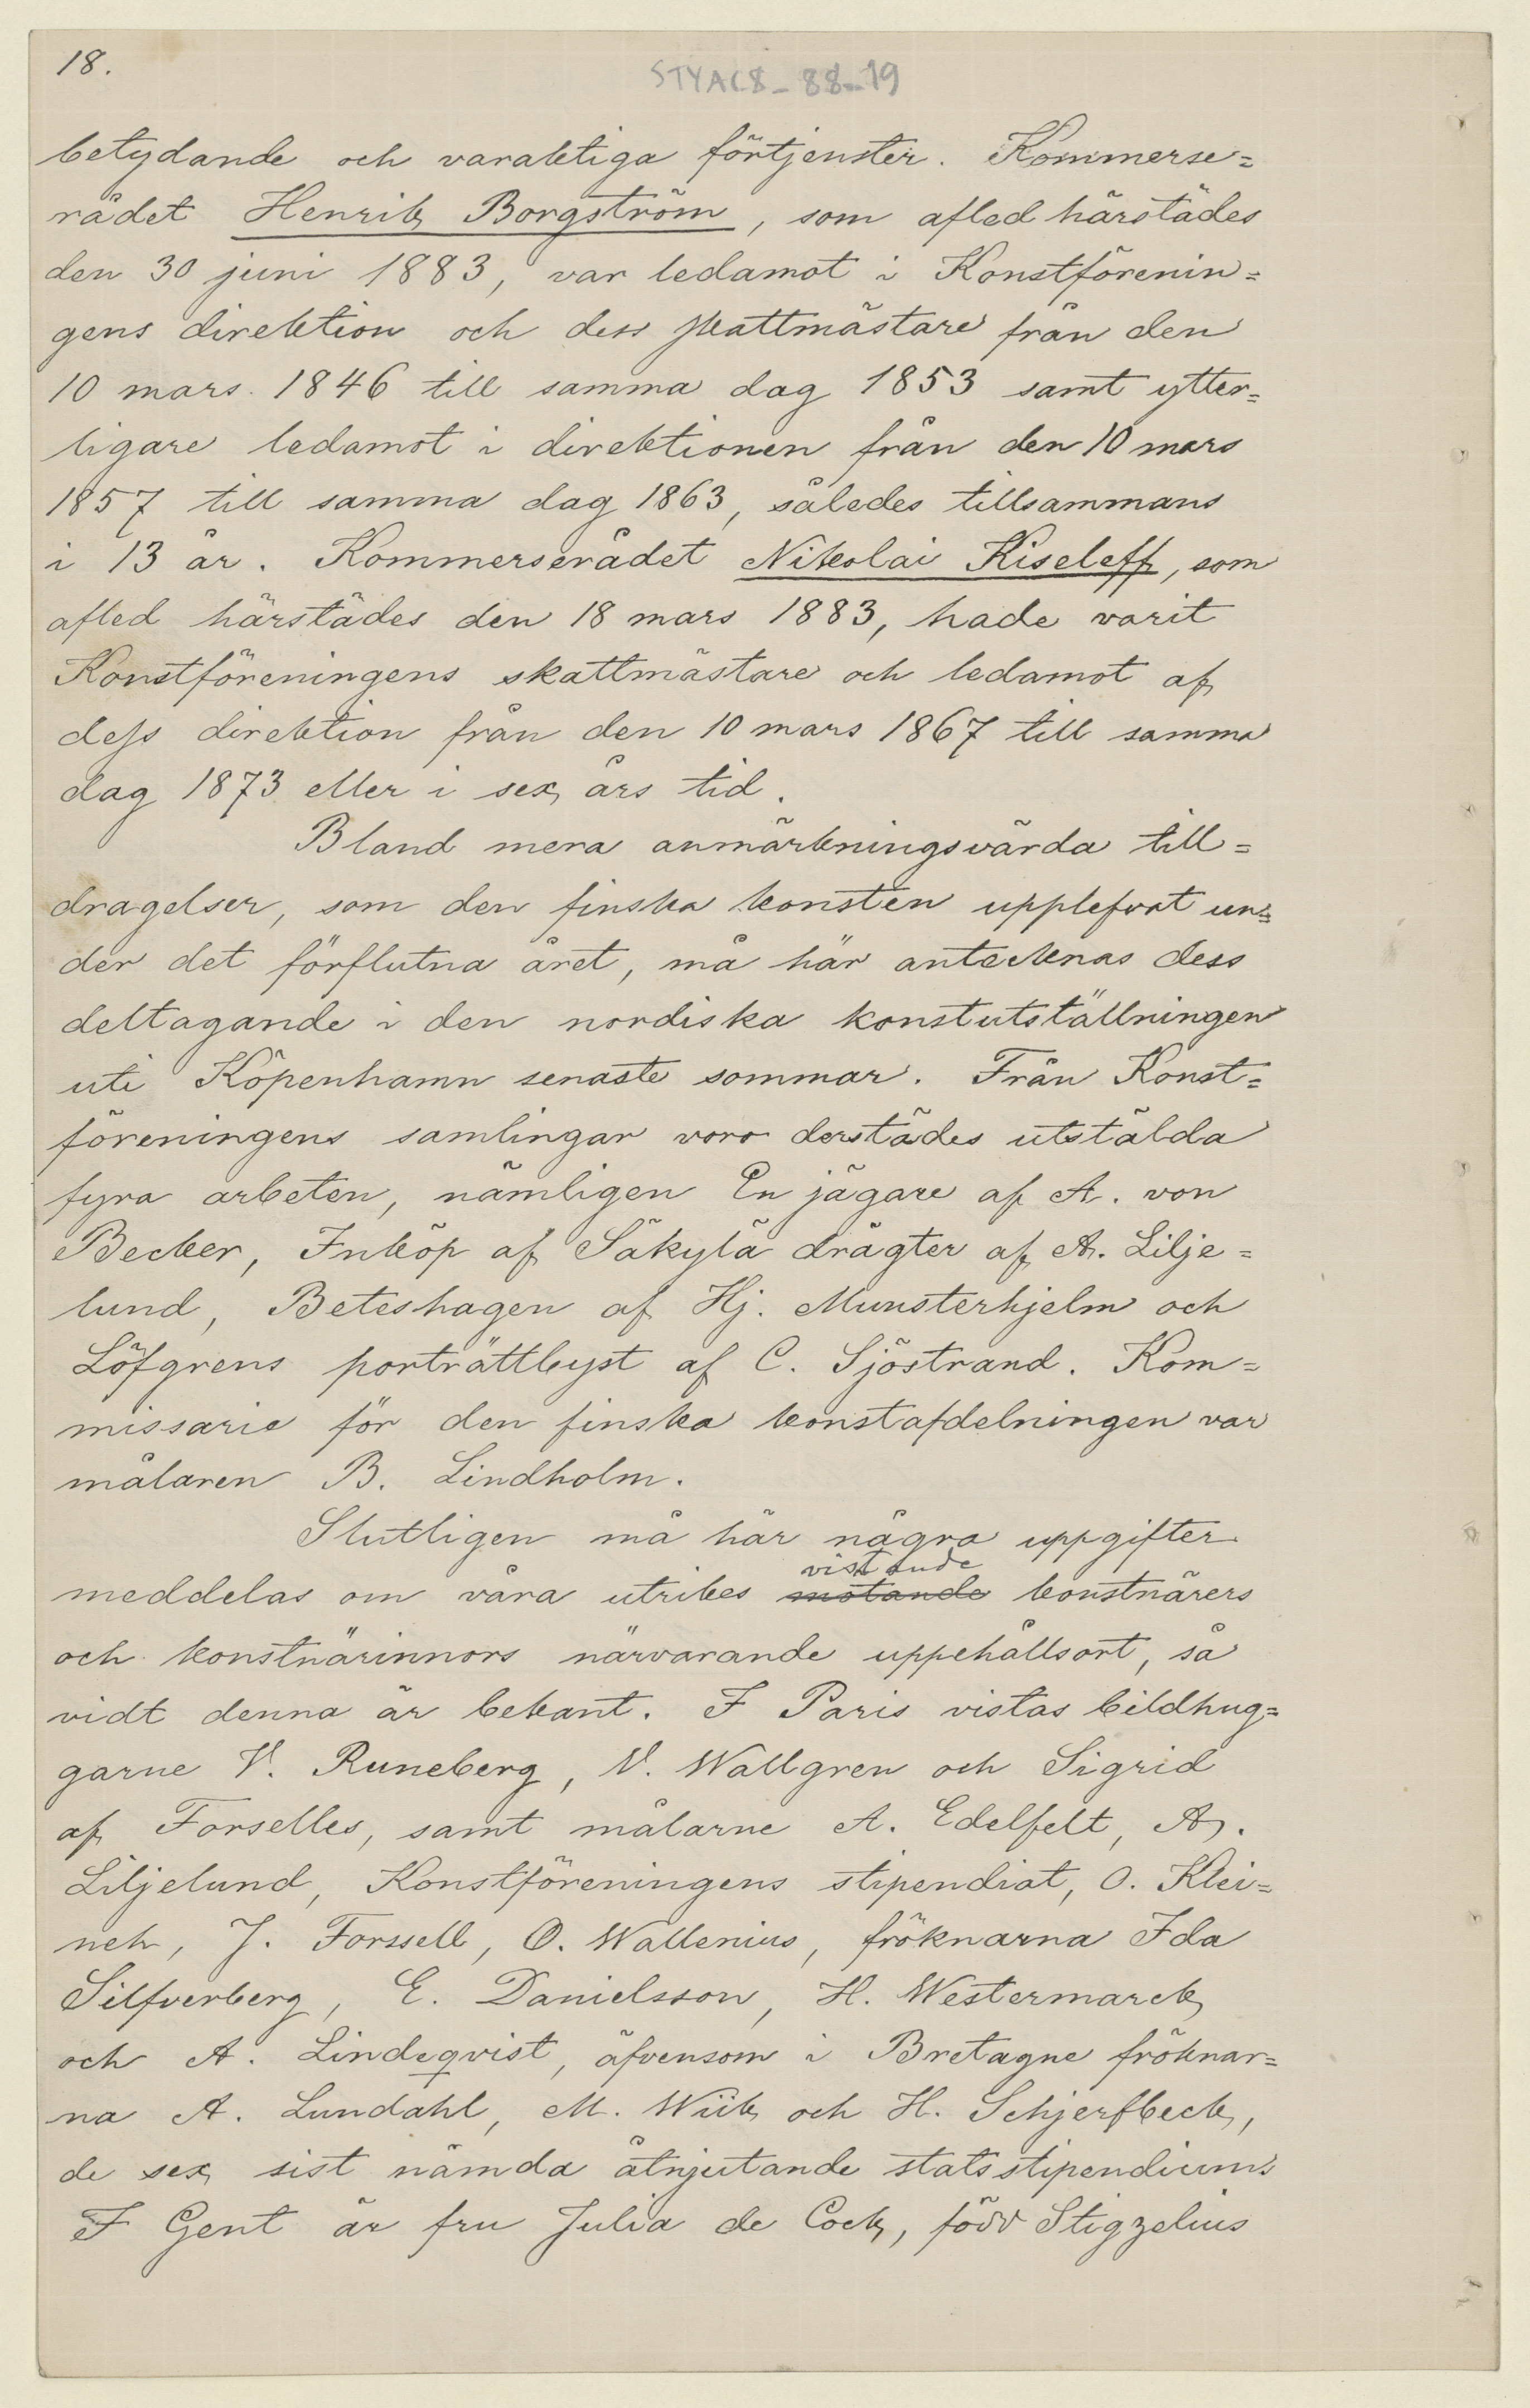 18.
STYAC8_88_19
betydande och varaktiga förtjenster. Kommerse=
rådet Henrik Borgström, som afled härstädes
den 30 juni 1883, var ledamot i Konstförenin=
gens direktion och dess skattmästare från den
10 mars 1846 till samma dag 1853 samt ytter=
ligare ledamot i direktionen från den 10 mars
1857 till samma dag 1863, således tillsammans
i 13 år. Kommerserådet Nikolai Kiseleff, som
afled härstädes den 18 mars 1883, hade varit
Konstföreningens skattmästare och ledamot af
dess direktion från den 10 mars 1867 till samma
dag 1873 eller i sex års tid.
Bland mera anmärkningsvärda till=
dragelser, som den finska konsten upplefvat un=
der det förflutna året, må här antecknas dess
deltagande i den nordiska konstutställningen
uti Köpenhamn senaste sommar. Från Konst=
föreningens samlingar voro derstädes utstälda
fyra arbeten, nämligen En jägare af A. von
Becker, Inköp af Säkylä drägter af A. Lilje=
lund, Beteshagen af Hj. Munsterhjelm och
Löfgrens porträttbyst af C. Sjöstrand. Kom=
missarie för den finska konstafdelningen var
målaren B. Lindholm.
Slutligen må här några uppgifter
vistande
meddelas om våra utrikes motande konstnärers
och konstnärinnors närvarande uppehållsort, så
vidt denna är bekant. I Paris vistas bildhug=
garne V. Runeberg, V. Wallgren och Sigrid
af Forselles, samt målarne A. Edelfelt, A.
Liljelund, Konstföreningens stipendiat, O. Klei=
neh, J. Forssell, O. Wallenius, fröknarna Ida
Silfverberg, E. Danielsson, H. Westermarck
och A. Lindeqvist, äfvensom i Bretagne fröknar=
na A. Lundahl, M. Wiik och H. Schjerfbeck,
de sex sist nämda åtnjutande statsstipendium.
I Gent är fru Julia de Cock, född Stigzelius